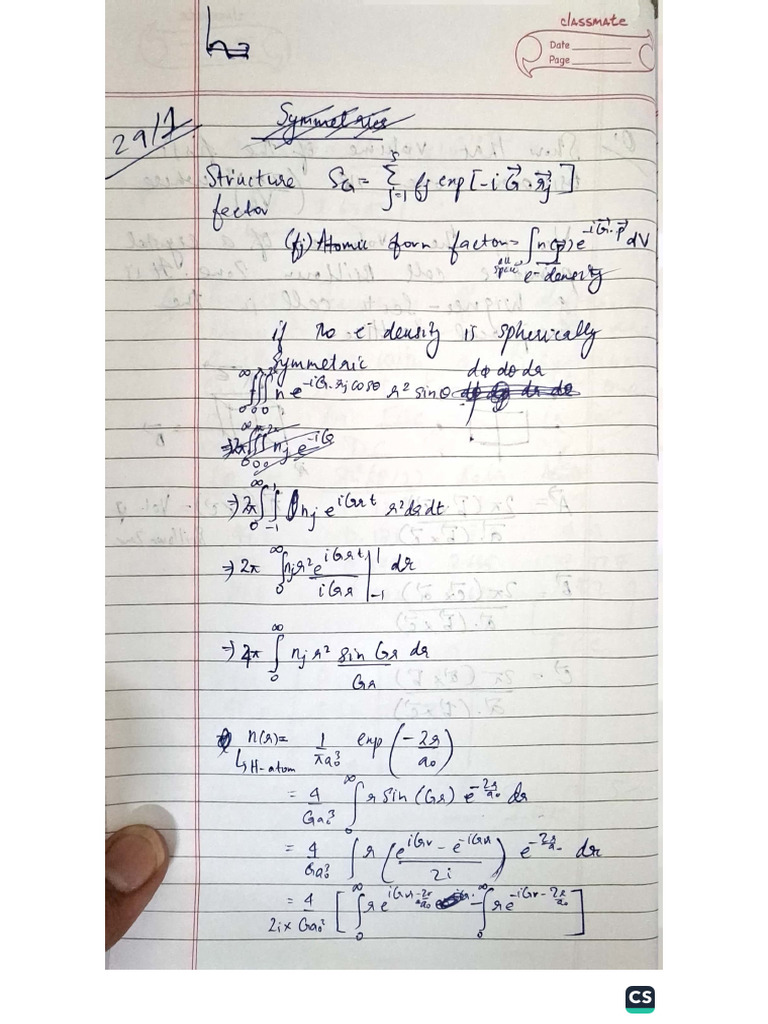 classmate
Date
Page
29/1
Symmetries
Structure S_G = Σ_{j=1}^{s} fj exp[-i G⃗·r⃗j]
fector
(fj) Atomic form factor = ∫_{all space} n(r⃗) e^{-iG⃗·r⃗} dV
e⁻ density
if no e⁻ density is spherically
symmetric dφ dθ dr
∫₀^∞∫₀^π∫₀^{2π} n e^{-iG·rj cosθ} r² sinθ
⇒ 2π∫₀^∞∫₀^π∫₀^{2π} nj e^{-iG
⇒ 2π ∫₀^∞ ∫_{-1}^{1} nj e^{iGrt} r² dr dt
⇒ 2π ∫₀^∞ nj r² e^{iGrt}/iGr |_{-1}^{1} dr
⇒ 4π ∫₀^∞ nj r² sin Gr/Gr dr
n(r) = 1/πa₀³ exp(-2r/a₀)
↳ H-atom
= 4/Ga₀³ ∫₀^∞ r sin(Gr) e^{-2r/a₀} dr
= 4/Ga₀³ ∫ r (e^{iGr} - e^{-iGr}/2i) e^{-2r/a₀} dr
= 4/2i×Ga₀³ [∫₀^∞ r e^{iGr-2r/a₀} - ∫₀^∞ r e^{-iGr-2r/a₀}]
CS